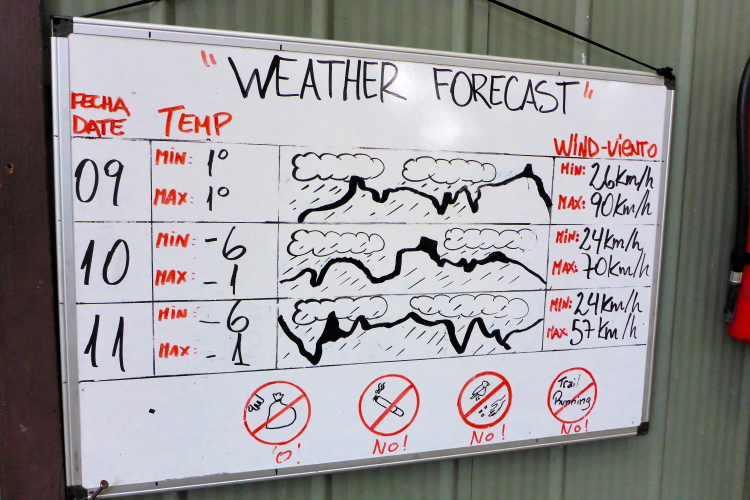 "WEATHER FORECAST"
FECHA
DATE
TEMP
WIND-VIENTO
09
MIN: 1°
MAX: 1°
MIN: 26Km/h
MAX: 90Km/h
10
MIN: -6
MAX: -1
MIN: 24Km/h
MAX: 70Km/h
11
MIN: -6
MAX: -1
MIN: 24Km/h
MAX 57Km/h
Trail
Running
'O!
NO!
NO!
NO!